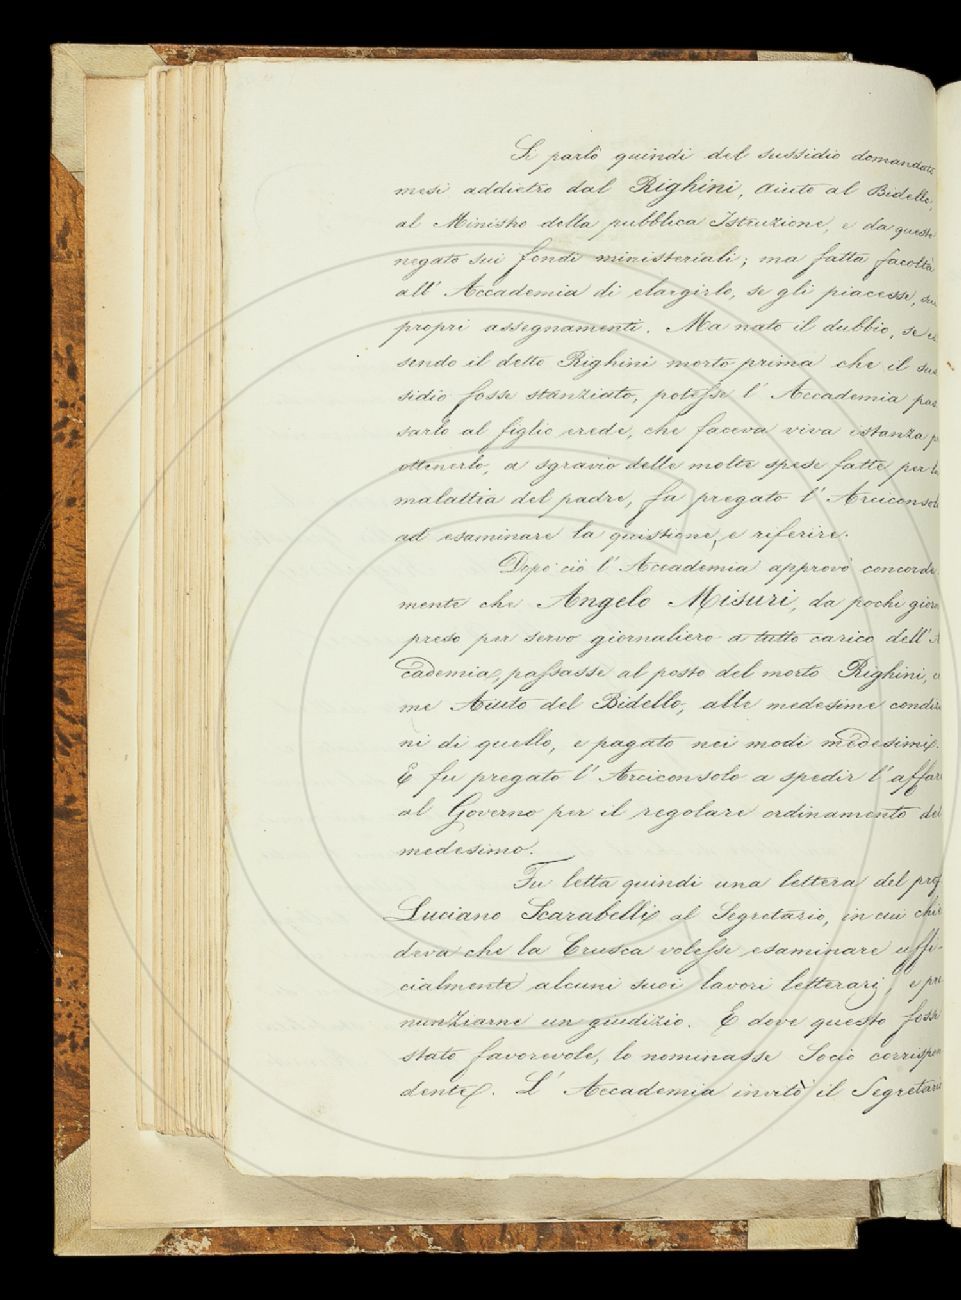 Si parlò quindi del sussidio domandato
mesi addietro dal Righini, Aiuto al Bidello,
al Ministro della pubblica Istruzione, e da questo
negato sui fondi ministeriali; ma fatta facoltà
all' Accademia di elargirlo, se gli piacesse, sui
propri assegnamenti. Ma nato il dubbio, se es
sendo il detto Righini morto prima che il sus
sidio fosse stanziato, potesse l' Accademia pas
sarlo al figlio erede, che faceva viva istanza p
ottenerlo, a sgravio delle molte spese fatte per la
malattia del padre, fu pregato l' Arciconsolo
ad esaminare la quistione, e riferire.
Dopo ciò l' Accademia approvò concorde
mente che Angelo Misuri, da pochi giorni
preso per servo giornaliero a tutto carico dell' A
cademia, passasse al posto del morto Righini, co
me Aiuto del Bidello, alle medesime condizio
ni di quello, e pagato nei modi medesimi.
E fu pregato l' Arciconsolo a spedir l' affare
al Governo per il regolare ordinamento del
medesimo.
Fu letta quindi una lettera del prof
Luciano Scarabelli al Segretario, in cui chie
deva che la Crusca volesse esaminare uffi-
cialmente alcuni suoi lavori letterarj, e pro
nunziarne un giudizio. E dove questo fosse
stato favorevole, lo nominasse Socio corrispon
dente. L' Accademia invitò il Segretario